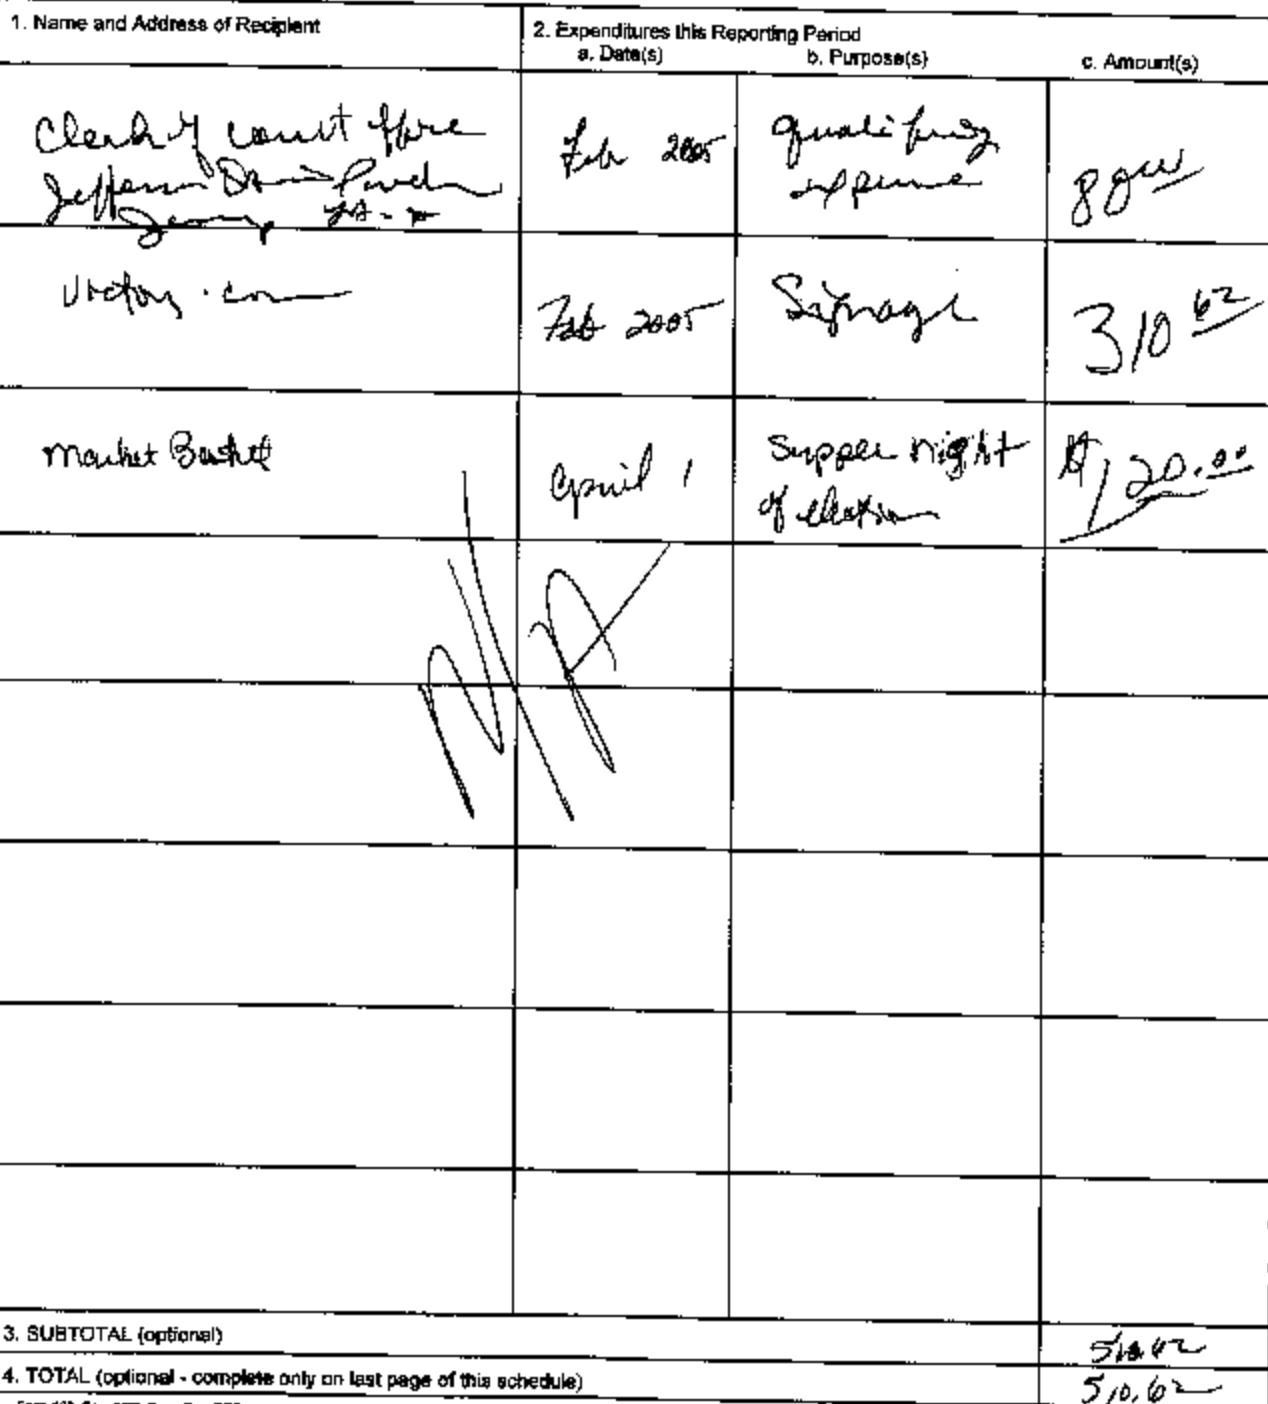 1. Name and Address of Recipient
2. Expenditures this Reporting Period
a. Date(s)
b. Purpose(s)
c. Amount(s)
Clerk of court office
Jefferson Davis Parish
Jennings LA
Feb 2005
qualifying
expense
80 00
Victory.com
Feb 2005
Signage
310 62
Market Basket
April 1
Supper night
of election
$120.00
N/A
3. SUBTOTAL (optional)
510.62
4. TOTAL (optional - complete only on last page of this schedule)
510.62